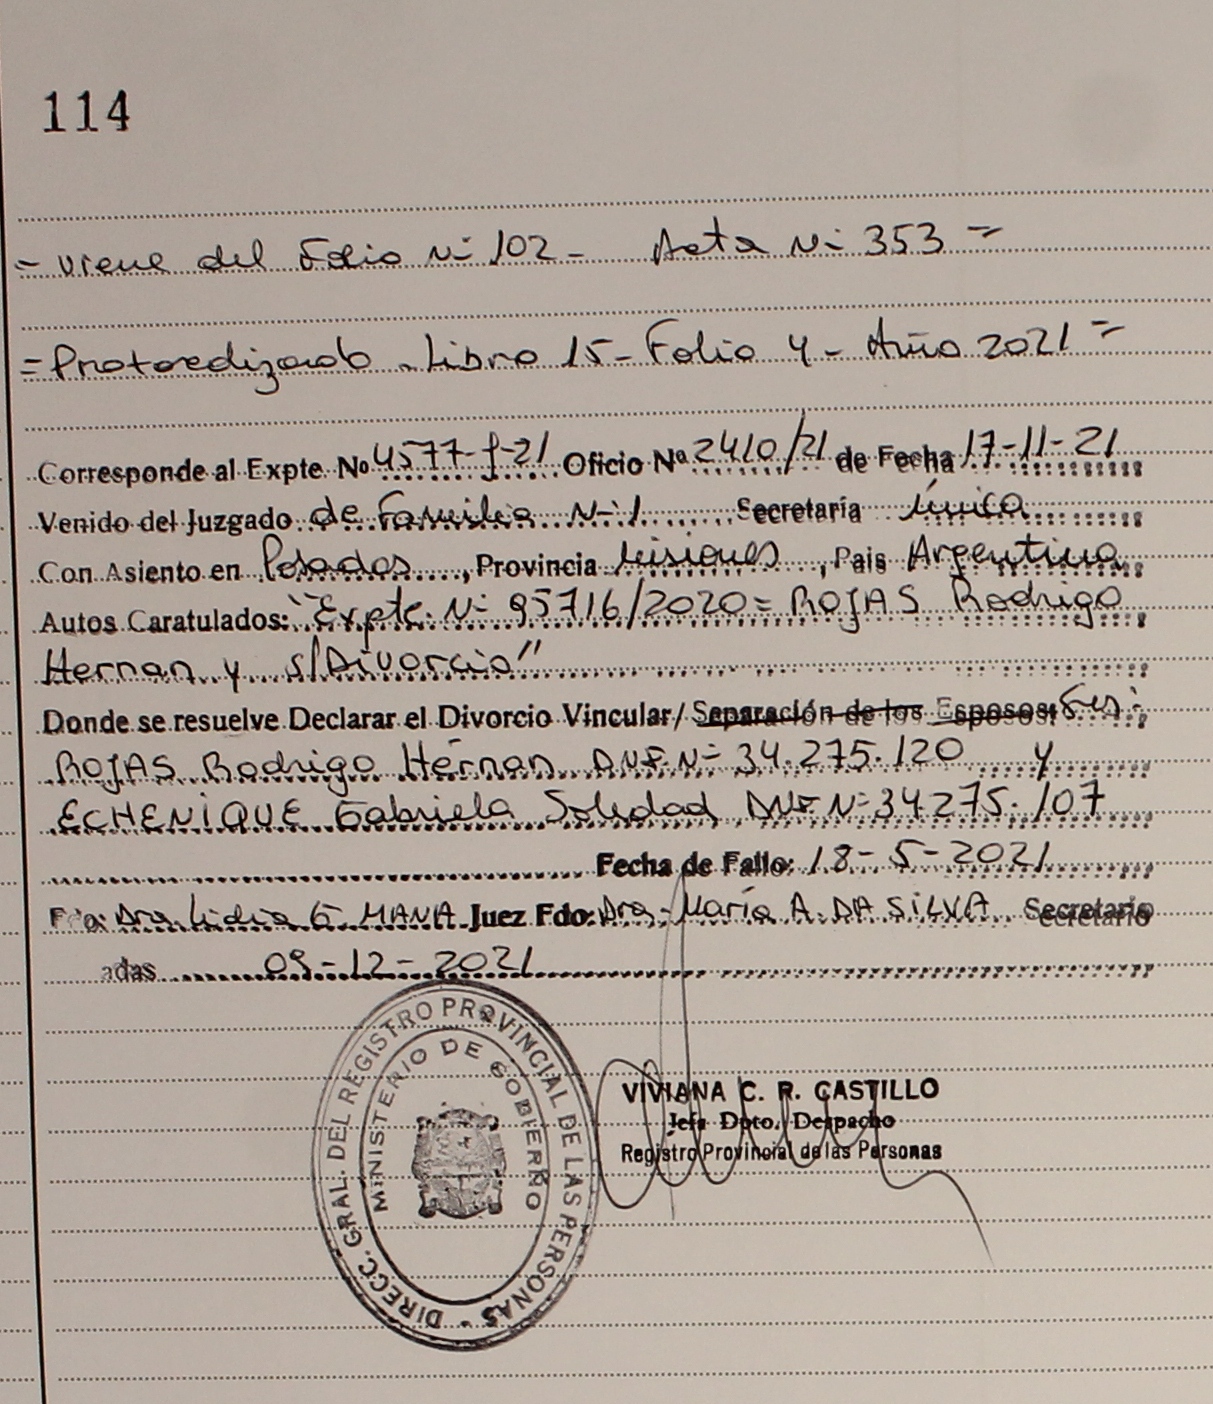 114
= Viene del Folio Nº 102 - Acta Nº 353 =
= Protocolizado - Libro 15 - Folio 4 - Año 2021 =
Corresponde al Expte Nº 4577-J-21 Oficio Nº 2410/21 de Fecha 17-11-21
Venido del Juzgado de Familia Nº 1 Secretaría única
Con Asiento en Posadas, Provincia Misiones, Pais Argentina
Autos Caratulados: "Expte. Nº 95716/2020 = ROJAS Rodrigo
Hernan y s/Divorcio"
Donde se resuelve Declarar el Divorcio Vincular/ Separación de los Esposos:
ROJAS Rodrigo Hernan DNI Nº 34.275.120 y
ECHENIQUE Gabriela Soledad DNI Nº 34275.107
Fecha de Fallo: 18-5-2021
Dra. Lidia G. MANA Juez Fdo: Dra. María A. DA SILVA Secretario
adas 09-12-2021
DIRECC. GRAL. DEL REGISTRO PROVINCIAL DE LAS PERSONAS
MINISTERIO DE GOBIERNO
VIVIANA C. R. CASTILLO
Jefa Dpto. Despacho
Registro Provincial de las Personas